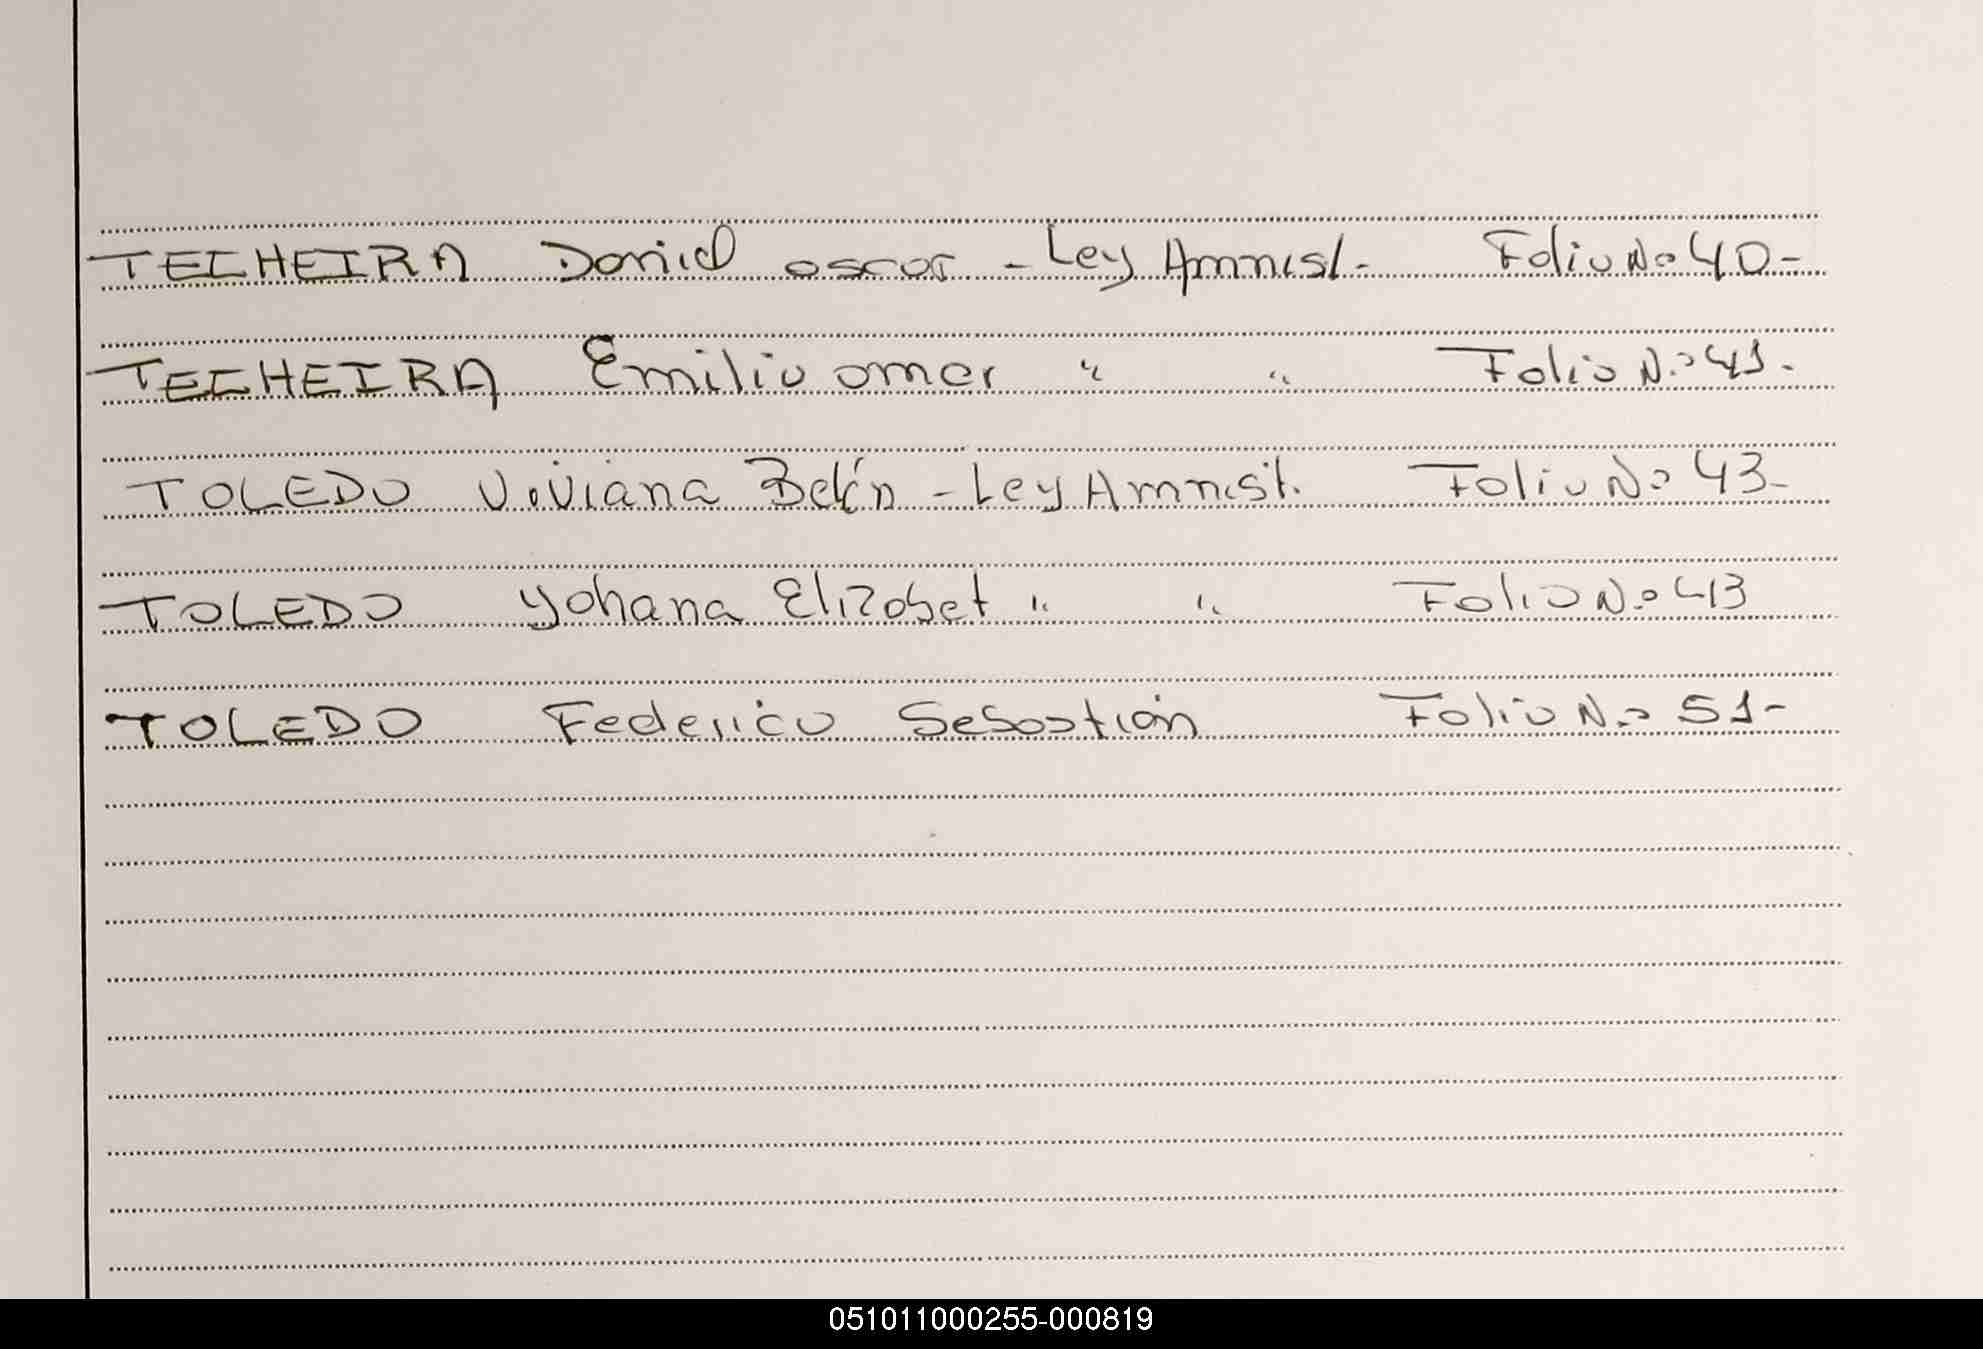 TECHEIRA Daniel oscar - Ley Amnist. Folio No 40-
TECHEIRA Emilio omer " " Folio N.o 41.
TOLEDO Viviana Belén - Ley Amnist. Folio No 43-
TOLEDO Yohana Elizabet " " Folio N.o 43
TOLEDO Federico Sebastián Folio N.o 51-
051011000255-000819